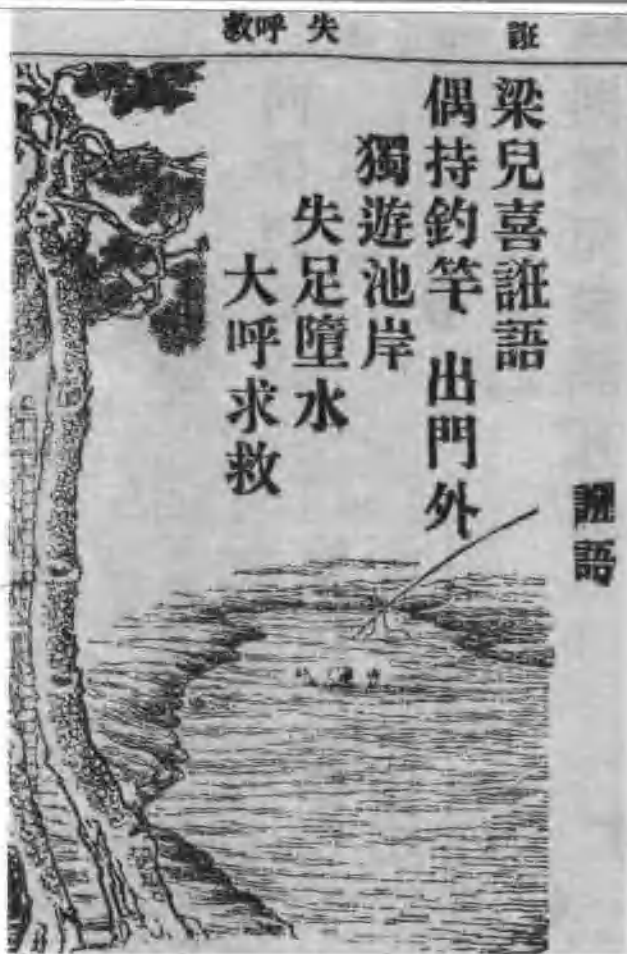 誑 失 呼救
誑語
梁兒喜誑語
偶持釣竿、出門外、
獨遊池岸
失足墮水
大呼求救